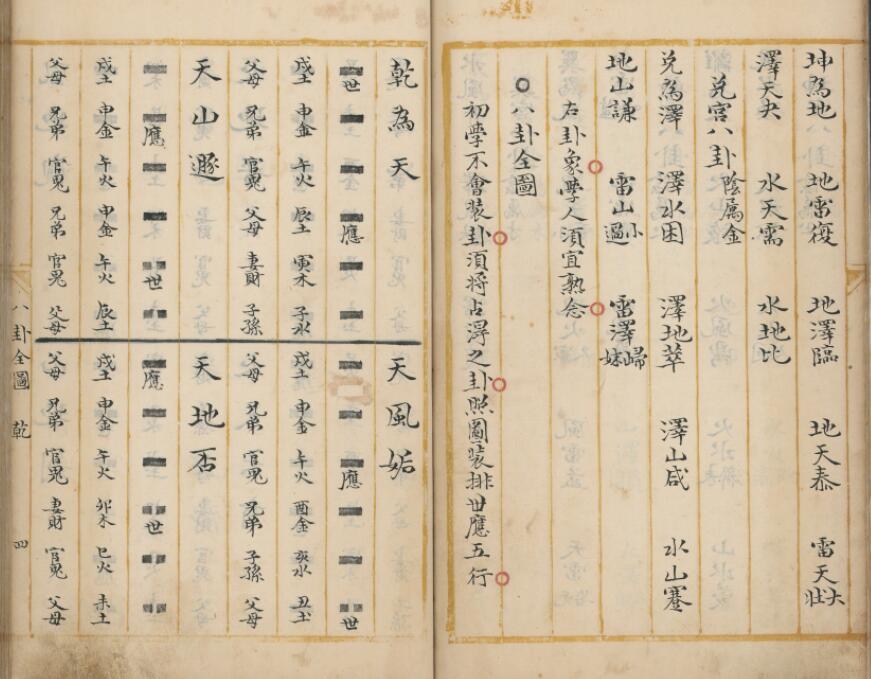 坤為地 地雷復 地澤臨 地天泰 雷天大壯
澤天夬 水天需 水地比
兌宮八卦陰属金
兌為澤 澤水困 澤地萃 澤山咸 水山蹇
地山謙 雷山小過 雷澤歸妹
右卦象學人須宜熟念
○八卦全圖
初學不會裝卦須將占淂之卦照圖裝排世應五行
乾為天
世 應
戌土 申金 午火 辰土 寅木 子水
父母 兄弟 官鬼 父母 妻財 子孫
天山遯
應 世
戌土 申金 午火 申金 午火 辰土
父母 兄弟 官鬼 兄弟 官鬼 父母
天風姤
應 世
戌土 申金 午火 酉金 亥水 丑土
父母 兄弟 官鬼 兄弟 子孫 父母
天地否
應 世
戌土 申金 午火 卯木 巳火 未土
父母 兄弟 官鬼 妻財 官鬼 父母
八卦全圖 乾 四